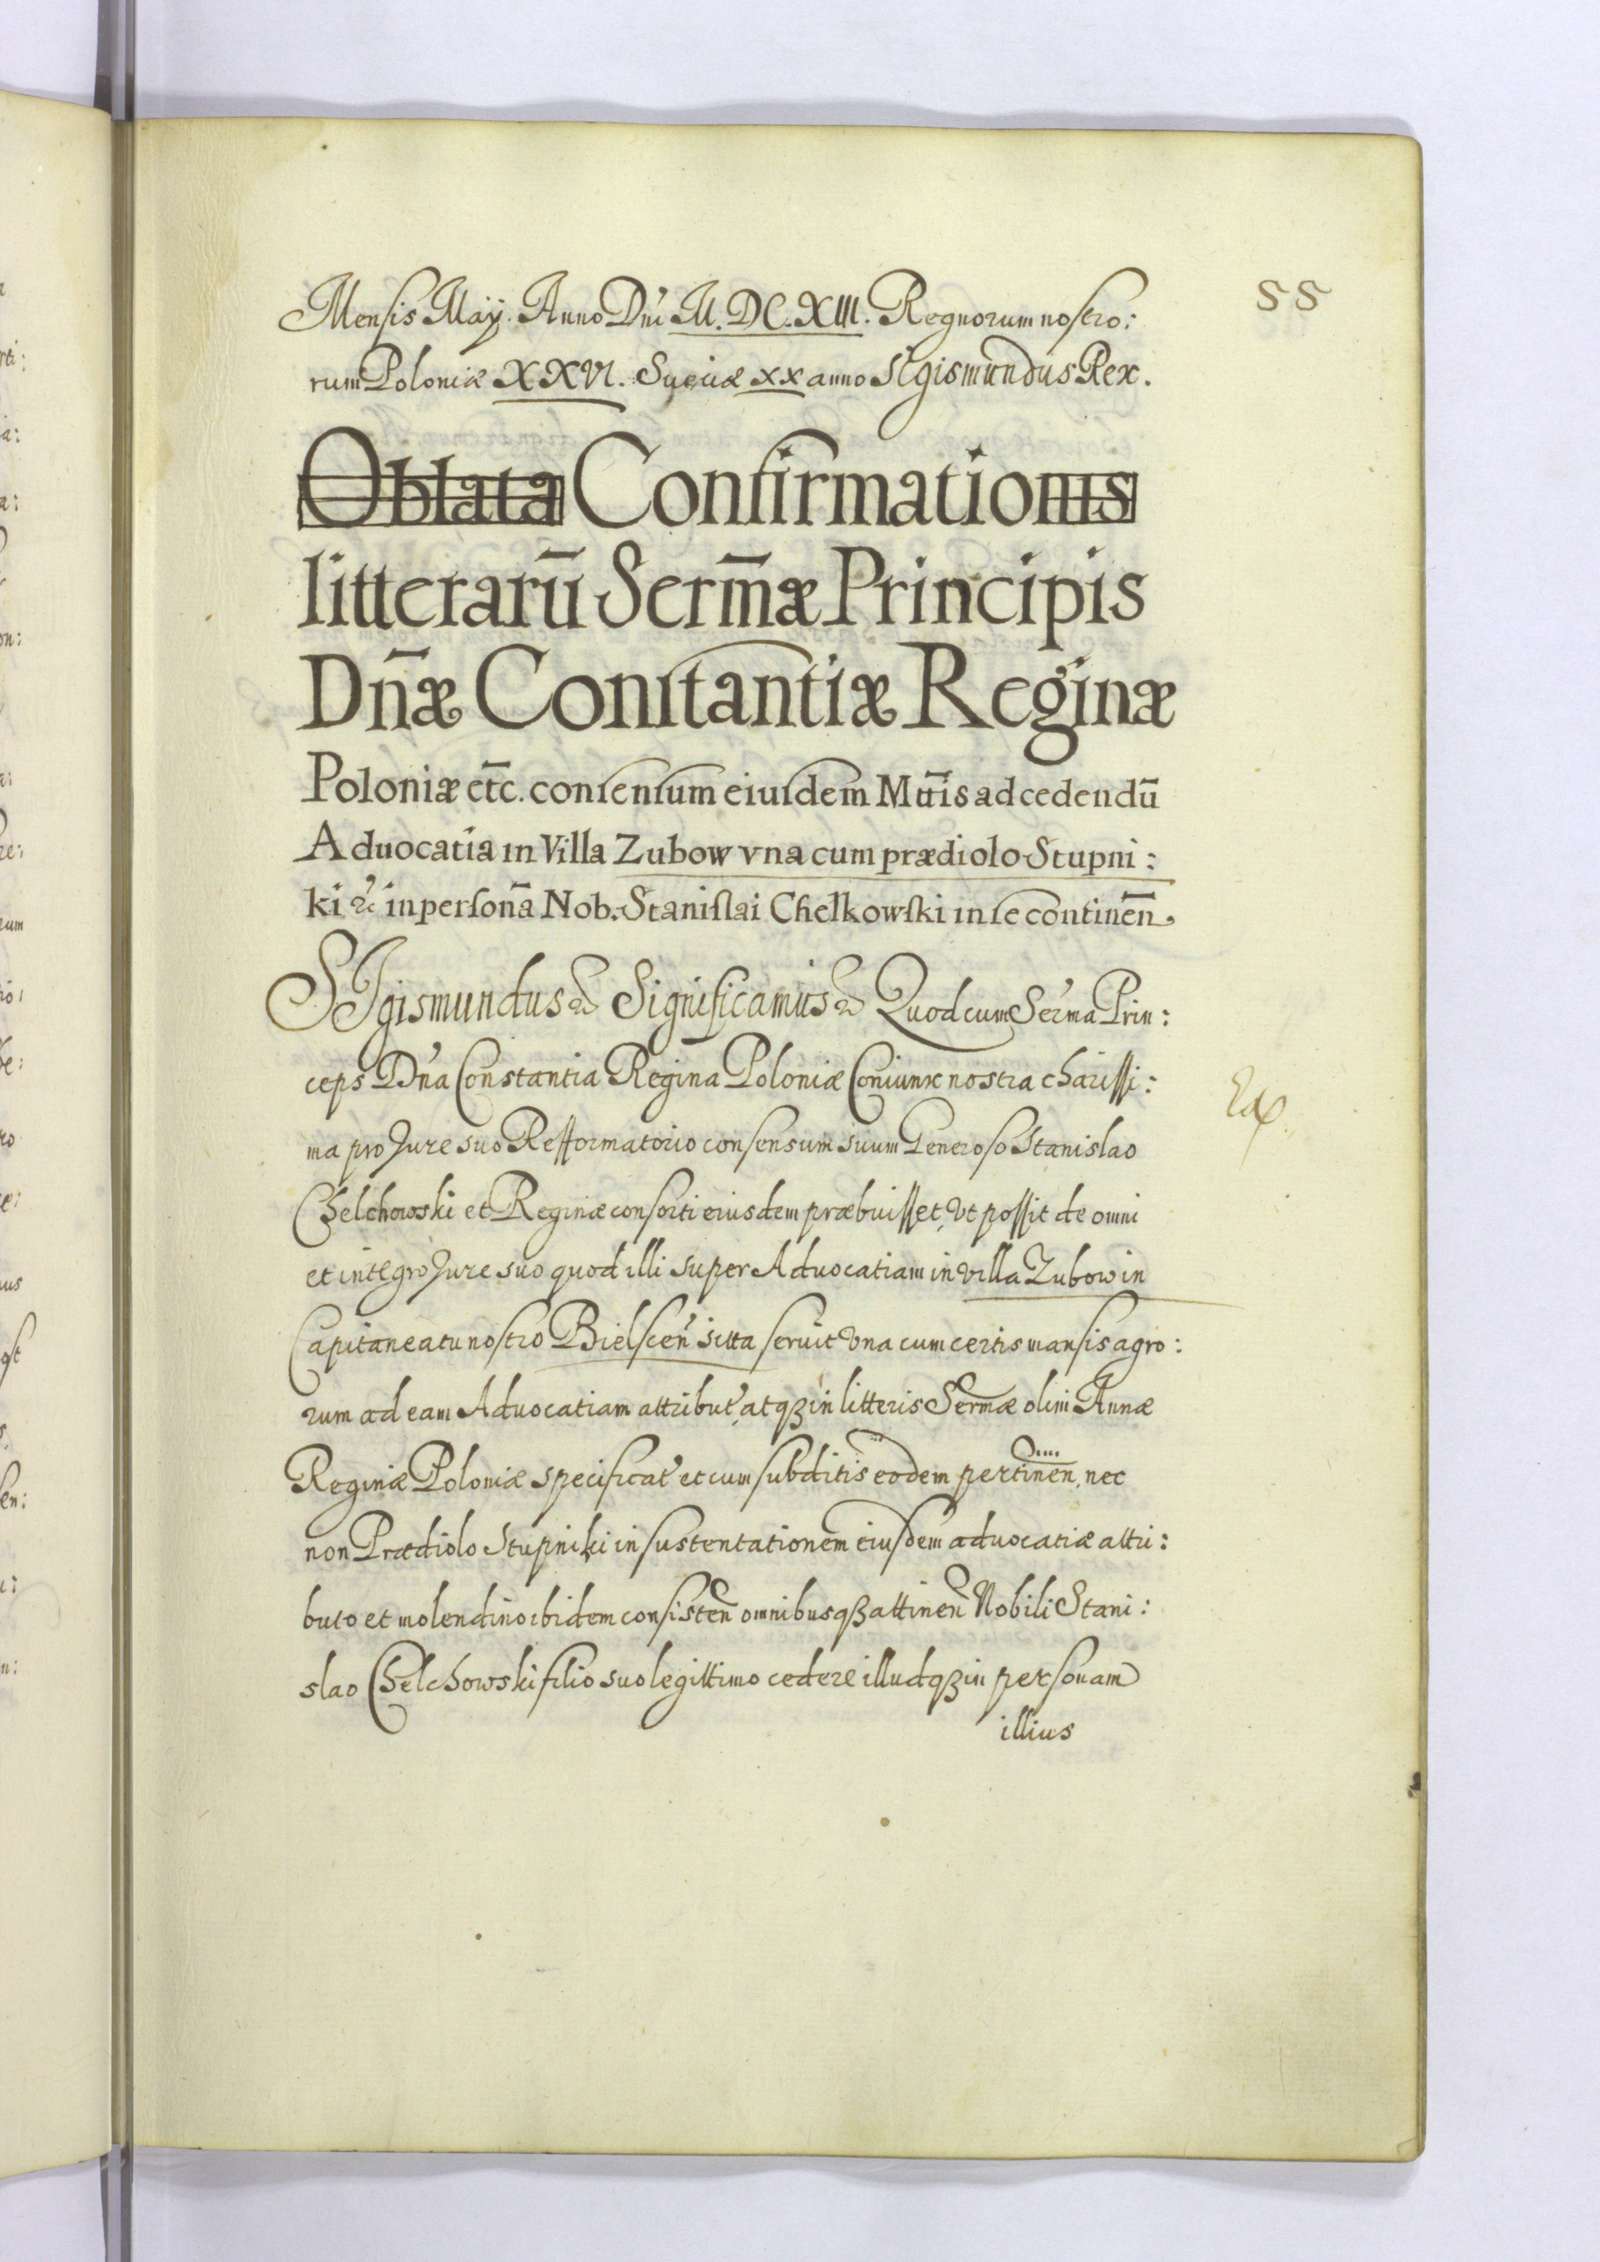 55
Mensis Maÿ. Anno Dni M.DC.XIII. Regnorum nostro:
rum Poloniæ XXVI. Sueciæ xx anno SIgismundus Rex.
Oblata Confirmationis
litterarū Serm̄æ Principis
Dn̄æ Constantiæ Reginæ
Poloniæ etc̄. consensum eiusdem Mttīs ad cedendū
Aduocatia in Villa Zubow vna cum prædiolo Stupni:
ki &c in personā Nob. Stanislai Chelkowski in se continēn
SIgismundus &c Significamus &c Quod cum Ser'ma Prin:
ceps D'na Constantia Regina Poloniæ Coniunx nostra charissi:
ma pro Jure suo Refformatorio consensum suum Generoso Stanislao
Chelchowski et Reginæ consorti eiusdem præbuisset, Vt possit de omni
et integro Jure suo quod illi super Aduocatiam in villa Zubow in
Capitaneatu nostro Bielscen' sitta seruit Vna cum certis mansis agro:
rum ad eam Aduocatiam attribut' atqȝ in litteris Serm̄æ olim Annæ
Reginæ Poloniæ specificat' et cum subditis eodem pertinēn, nec
non Prædiolo Stupniki in sustentationem eiusdem aduocatiæ attri:
buto et molendino ibidem consistēn omnibusqȝ attinēn Nobili Stani:
slao Chelchowski filio suo legittimo cedere illudqȝ in personam
illius